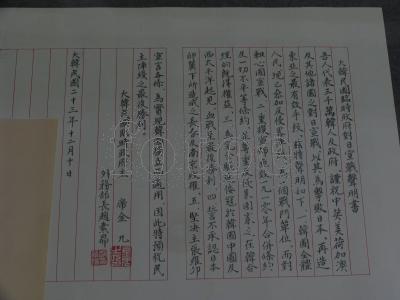 大韓民國臨時政府對日宣戰聲明書
吾人代表三千萬韓人及政府 謹祝中英美荷加澳
及其他諸國之對日宣戰 以其爲擊敗日本 再造
東亞之最有效手段 玆特聲明如下 一 韓國全體
人民現已參加反侵略陣線 爲一個戰鬥單位 而對
軸心國宣戰 二 重複宣布無效一九一〇年合倂條約
及一切不平等條約 並尊重反侵略國家之在韓合
理的旣得權益 三 爲完全驅逐倭寇於韓國中國及
西太平洋起見 血戰至最後勝利 四 誓不承認日本
卵翼下所造成之長春及南京政權 五 堅決主張羅卯
宣言各條 爲實現韓國獨立而適用 因此特預祝民
主陣綫之最後勝利
大韓民國臨時政府主席金九
外務部長趙素昻
大韓民國二十三年十二月十日